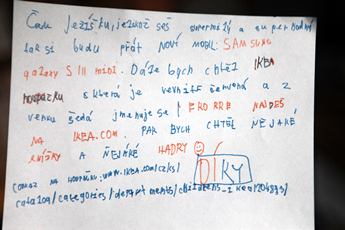 Čau ježíšku, jelikož seš supermilý a superhodný
tak si budu přát NOVÝ MOBIL: SAMSUNG
galaxy S III mini. Dále bych chtěl IKEA
houpačku která je vevnitř červená a z
venku šedá jmenuje se EKORRE NAJDEŠ
NA IKEA.COM. PAK BYCH CHTĚL NĚJAKÉ
KNÍŽKY A NĚJAKÉ HADRY
DÍKY
(ODKAZ NA HOUPAČKU: www.IKEA.com/cz/cs/
catalog/categories/departments/childrens_ikea/